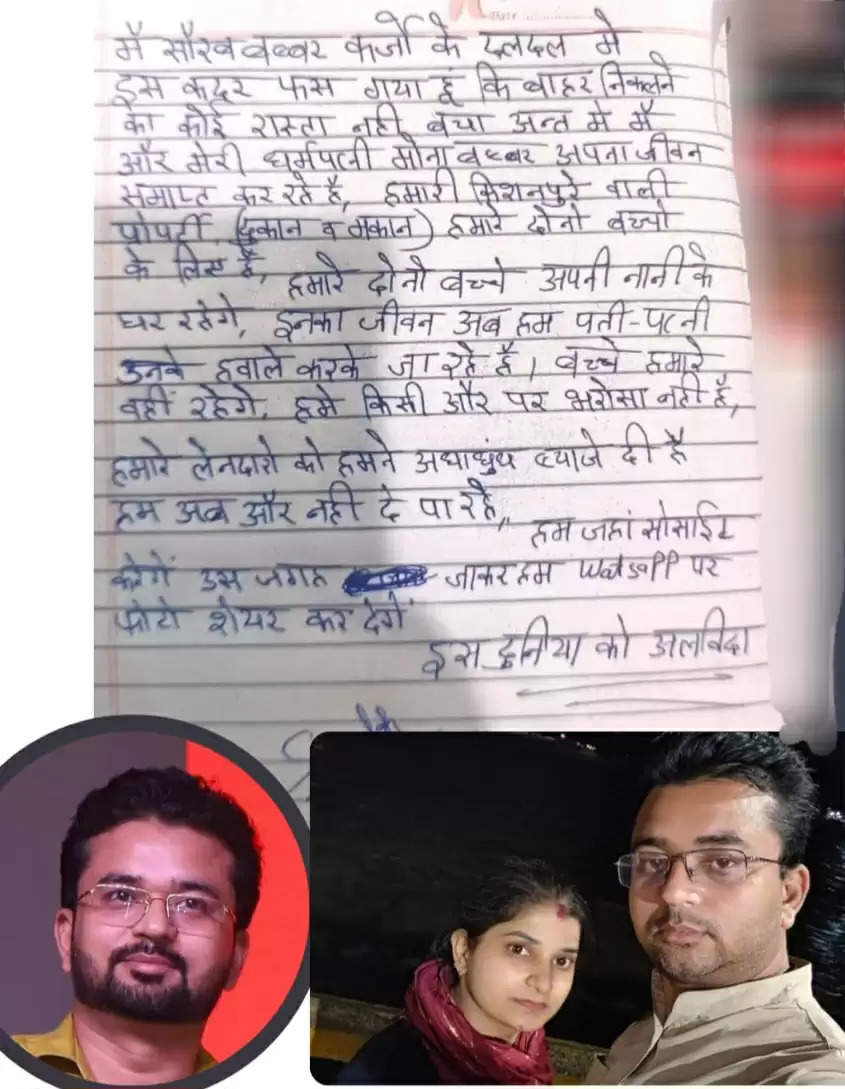 मै सौरव बब्बर कर्जो के दलदल मे
इस कदर फस गया हूं कि बाहर निकलने
का कोई रास्ता नही बचा अन्त मे मै
और मेरी धर्मपत्नी मोना बब्बर अपना जीवन
समाप्त कर रहे है, हमारी किशनपुरे वाली
प्रोपर्टी (दुकान व मकान) हमारे दोनो बच्चो
के लिए है, हमारे दोनो बच्चे अपनी नानी के
घर रहेगे, इनका जीवन अब हम पती-पत्नी
उनके हवाले करके जा रहे है। बच्चे हमारे
वहीं रहेगे, हमे किसी और पर भरोसा नही है,
हमारे लेनदारो को हमने अंधाधुंध ब्याजे दी है
हम अब और नही दे पा रहे,,
हम जहां सोसाईट
करेगें उस जगह जाकर हम Watsapp पर
फोटो शेयर कर देगें
इस दुनिया को अलविदा